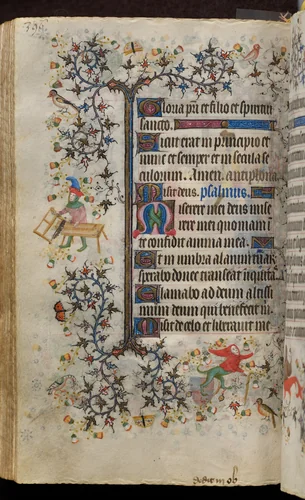 Gloria pri et filio et spiritui
sancto.
Sicut erat in principio et
nunc et semper et in secula se
culorum. Amen. antiphona
Miser deus. psalmus.
Miserere mei deus mise
rere mei quoniam i
te confidit anima mea.
Et in umbra alarum tuar
sperabo donec transeat iniquitas
Clamabo ad deum altissi
mum deum qui benefecit m
Misit de celo et liberavit me